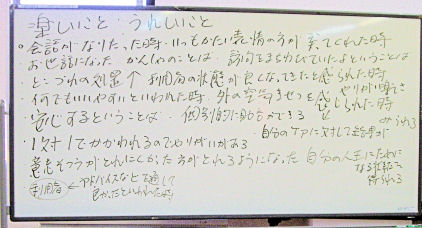 楽しいこと・うれしいこと
会話がなりたった時・いつもかたい表情の方が笑ってくれた時
お世話になった かんじゃのことは 訪問をまちわびていたよということば
とこづれの処置↑ 利用者の状態が良くなってきたと感じられた時
何でもいいやすいといわれた時・外の空気 きせつを感じとられた時 やりがい
するということは 個別的に助言ができる
1対1でかかわれるのでやりがいがある 自分のケアに対して結果が みられる
意志そつうがとれにくかった方がとれるようになった 自分の人生にためになる
利用者 ← アドバイスなどを通して
良かったといわれた時 得られる